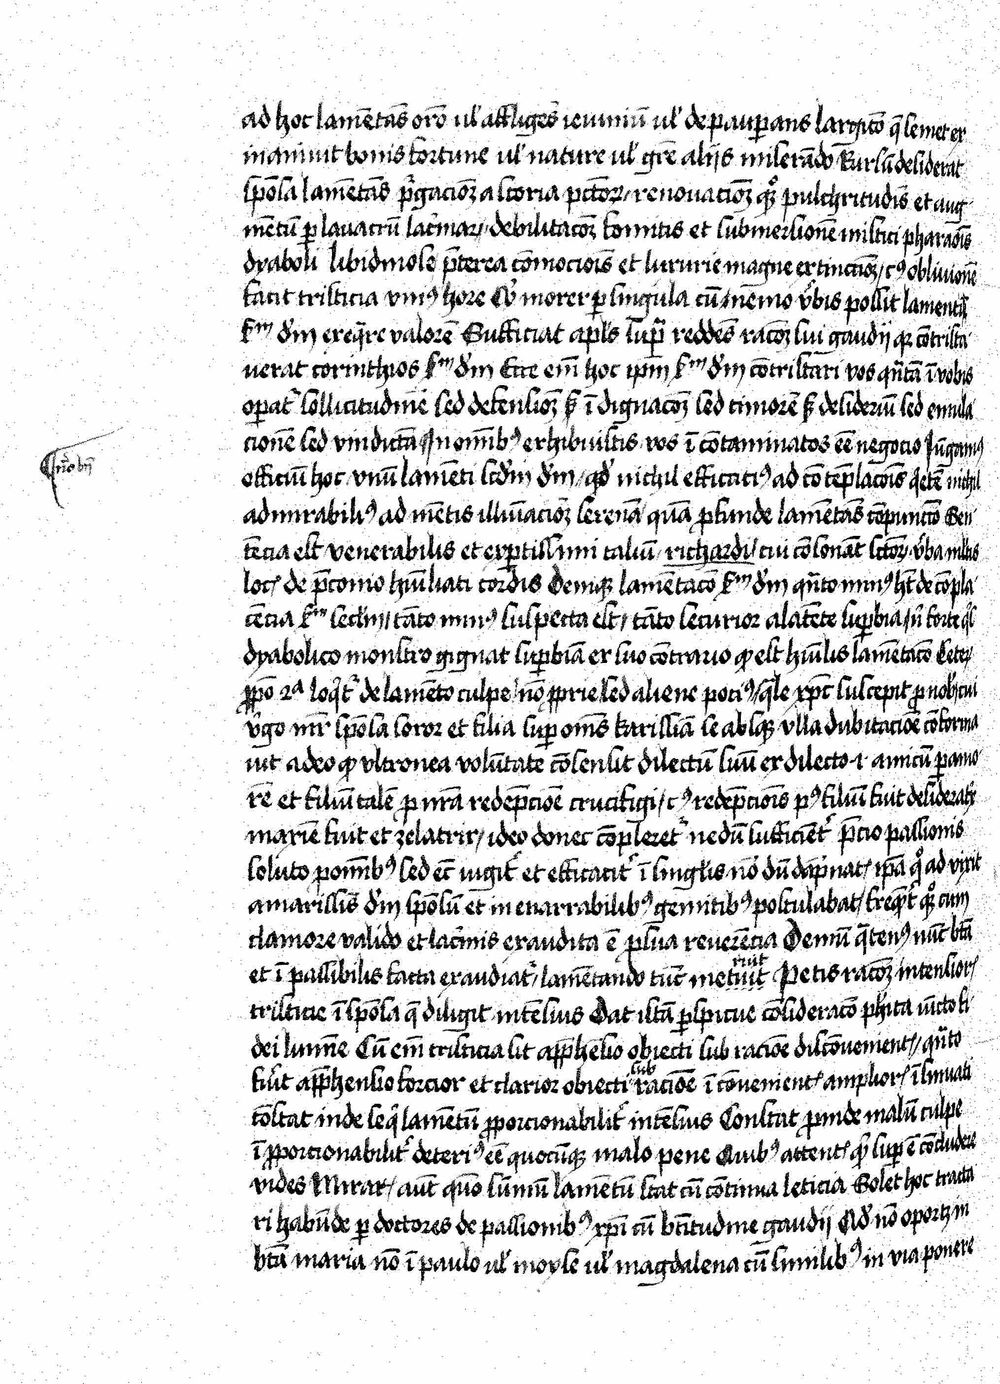 ad hoc lamētās orō ul' affligēs ieiuniū ul' depaupans largicō q̄ semet ex
inaniuit bonis fortune ul' nature ul' grē alijs miserādo Rursū desiderat
spōsa lamētās p̄gacioꝫ a scoria pctoꝝ renouacioꝫ qꝫ pulchritudīs et aug
mētū p lauacrū lac̓maꝝ debilitacoꝫ fomitis et submersionē mistici pharaōis
dyaboli libidinose p̄terea cōmociōis et luxurie magne extinctioꝫ cꝰ obliuionē
facit tristicia vniꝰ hore Cur morer p singula cū nemo v̓bis possit lamentis
sm dm exq̄rere valorē Sufficiat apl's sup̄ reddēs racoꝫ sui gaudij qꝛ cōtrista
uerat corinthios sm dm Ecce em̄ hoc ipm̄ sm dm cōtristari vos qntā ī vobis
operat̓ sollicitudinē sed defensioꝫ sꝫ ī dignacoꝫ sed timorē sꝫ desideriū sed emula
cionē sed vindictā In om̄ibꝰ exhibuistis vos ī cōtaminatos eē negocio Iūgamꝰ
officiū hoc vnū lamēti scdm dm qd nichil efficaciꝰ ad cōtēplacōis quietē nichil
admirabiliꝰ ad mētis illuīacioꝫ serenā quā p̄funde lamētās cōpunctō Sen
tēcia est venerabilis et exptissimi taliū richardi cui cōsonāt sctoꝝ v̓ba mltis
locꝭ de p̄conio hūiliati cordis Deniqꝫ lamētacō sm dm qnto minꝰ hꝫ de cōpla
cēcia sm seclm tāto minꝰ suspecta est tāto securior a latēte supbia n̄ forte qs
dyabolico monstro gignat supbiā ex suo cōtrario qd est hūilis lamētacō Ceteꝝ
ꝓpō 2a loqt̓ de lamēto culpe nō ꝓprie sed aliene pociꝰ q̄le xpc suscepit ꝓ nobꝭ cui
v̓go mr̄ spōsa soror et filia sup om̄s karissīa se absqꝫ vlla dubitaciōe cōforma
uit adeo qd vltronea volūtate cōsensit dilectū suū ex dilecto et amicū p amo
rē et filiū talē ꝓ nr̄a redēpciōe crucifigi cꝰ redēpciōis pꝰ filiū fuit desideratꝭ
marie fuit et zelatrix ideo donec cōpleret̓ nedū sufficiēt̓ p̄cio passionis
soluto ꝓ om̄ibꝰ sed ec̄ iugit̓ et efficacit̓ ī singl'is nō dū dāpnatꝭ ipa qꝫ ad vixit
amarissīs dm spōsū et in enarrabilibꝰ gemitibꝰ postulabat freqnt̓ qꝫ cum
clamore valido et lac̓mis exaudita ē ꝓ sua reuerēcia Demū q̄tenꝰ nūc btā
et ī passibilis facta exaudiat̓ lamētando tūc meruit Petis racoꝫ intensior
tristicie ī spōsa q̄ diligit intēsius Dat istā pspicue cōsideracō ph'ica iūcto fi
dei lumīe Cū em̄ tristicia sit appͬhensio obiecti sub raciōe discōuenientꝭ qnto
fūit appͬhensio forcior et clarior obiecti sub raciōe ī cōuenientꝭ amplior ī sinuati
cōstat inde seq̄ lamētū ꝓporcionabilit̓ intēsius Constat ꝓinde malū culpe
ī ꝓporcionabilit̓ deteriꝰ eē quocūqꝫ malo pene Quibꝰ attentꝭ qd sup ē cōcludere
vides Mirarꝭ aut̄ quō sūmū lamētū stat cū cōtinua leticia Solet hoc tracta
ri habūde p doctores de passionibꝰ xpi cū btitudine gaudij Qd nō oportꝫ in
btā maria nō ī paulo ul' moyse ul' magdalena cū similibꝰ in via ponere